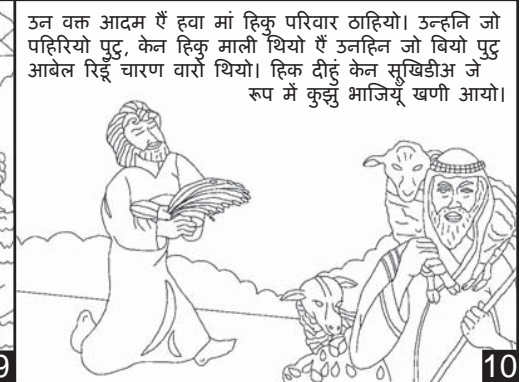 उन वक्त आदम ऐं हवा मां हिकु परिवार ठाहियो। उन्हनि जो
पहिरियो पुटु, केन हिकु माली थियो ऐं उनहिन जो बियो पुटु
आबेल रिढूँ चारण वारो थियो। हिक दीहुं केन सूखिडीअ जे
रूप में कुझु भाजियूँ खणी आयो।
9
10